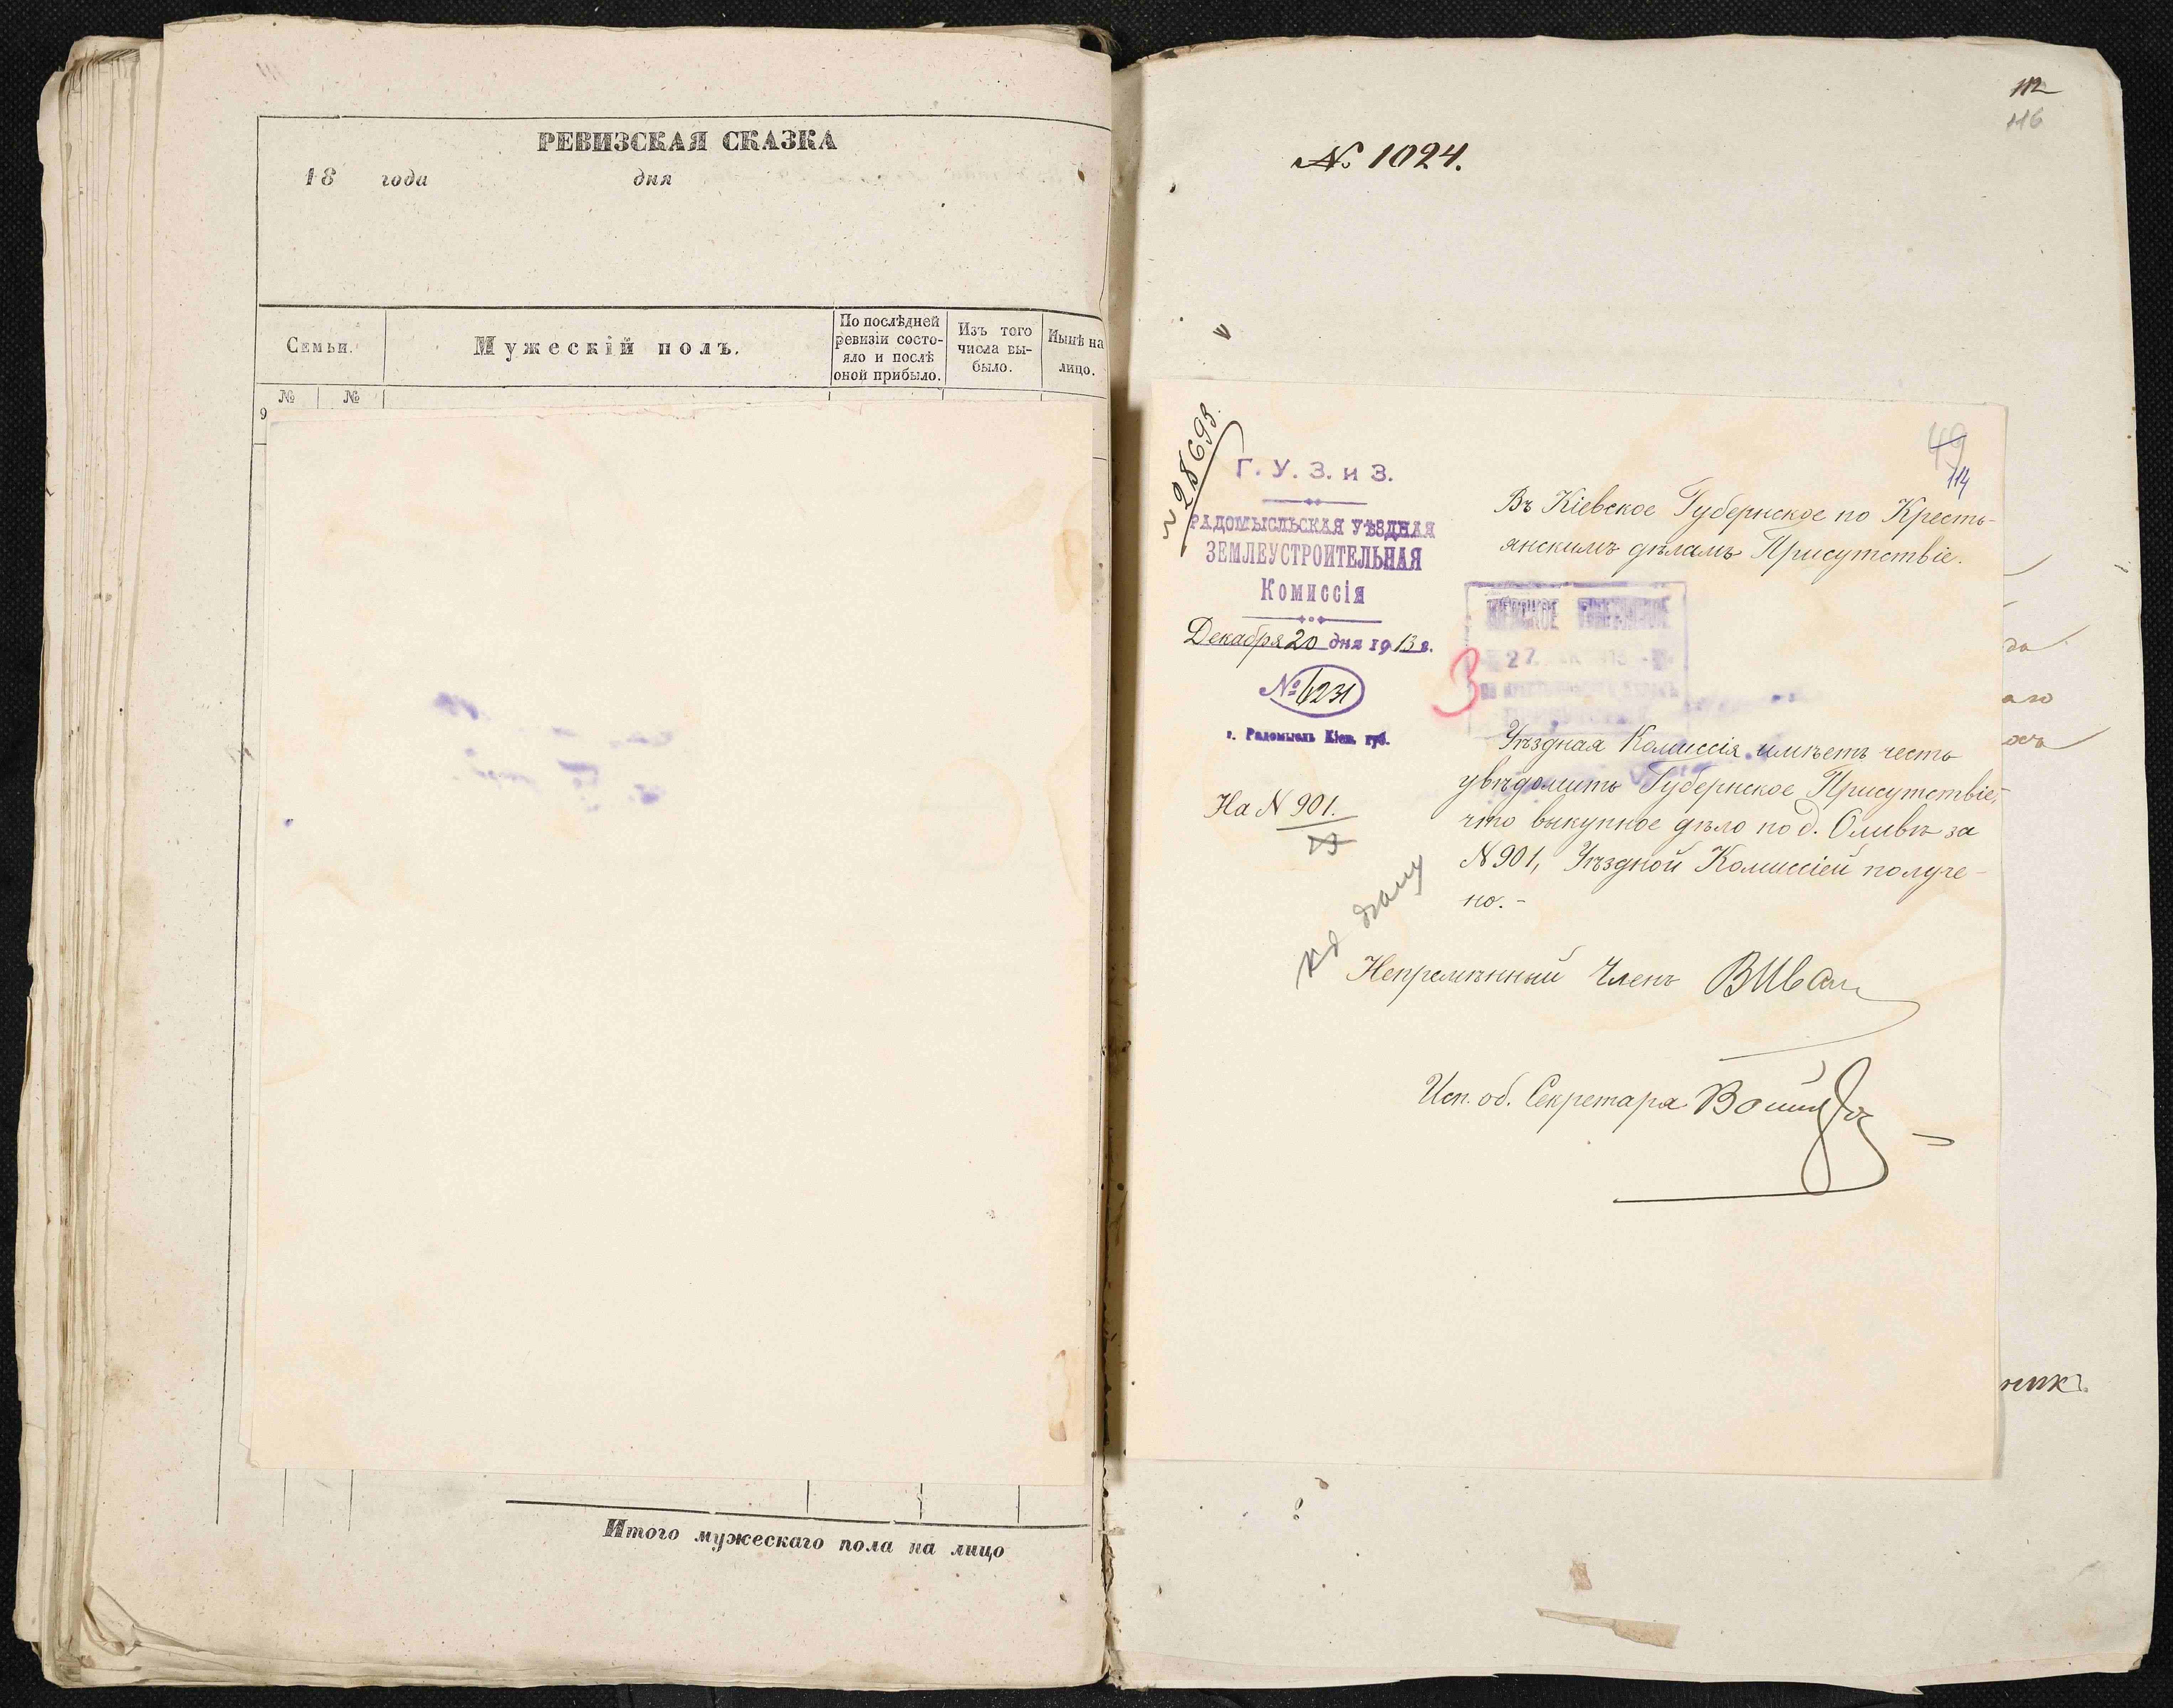 РЕВИЗСКАЯ СКАЗКА
18 года дня
Семьи.
Мужескій полъ.
По послѣдней
ревизіи состо-
яло и послѣ
оной прибыло.
Изъ того
числа вы-
было.
Нынѣ на
лицо.
№ №
9
Итого мужескаго пола на лицо
112
116
№ 1024.
49
114
28693.
Г. У. З. и З.
РАДОМЫСЛЬСКАЯ УѢЗДНАЯ
ЗЕМЛЕУСТРОИТЕЛЬНАЯ
Комиссія
Декабря 20 дня 1913 г.
№ 6231
г. Радомысль Кіев. губ.
На N 901.
Въ Кіевское Губернское по Кресть-
янскимъ дѣламъ Присутствіе.
27
3
Уѣздная Комиссія имѣетъ честь
увѣдомить Губернское Присутствіе,
что выкупное дѣло по д. Оливѣ за
N 901, Уѣздной Комиссіей получе-
но. -
къ дѣлу
Непремѣнный Членъ
Исп. об. Секретаря